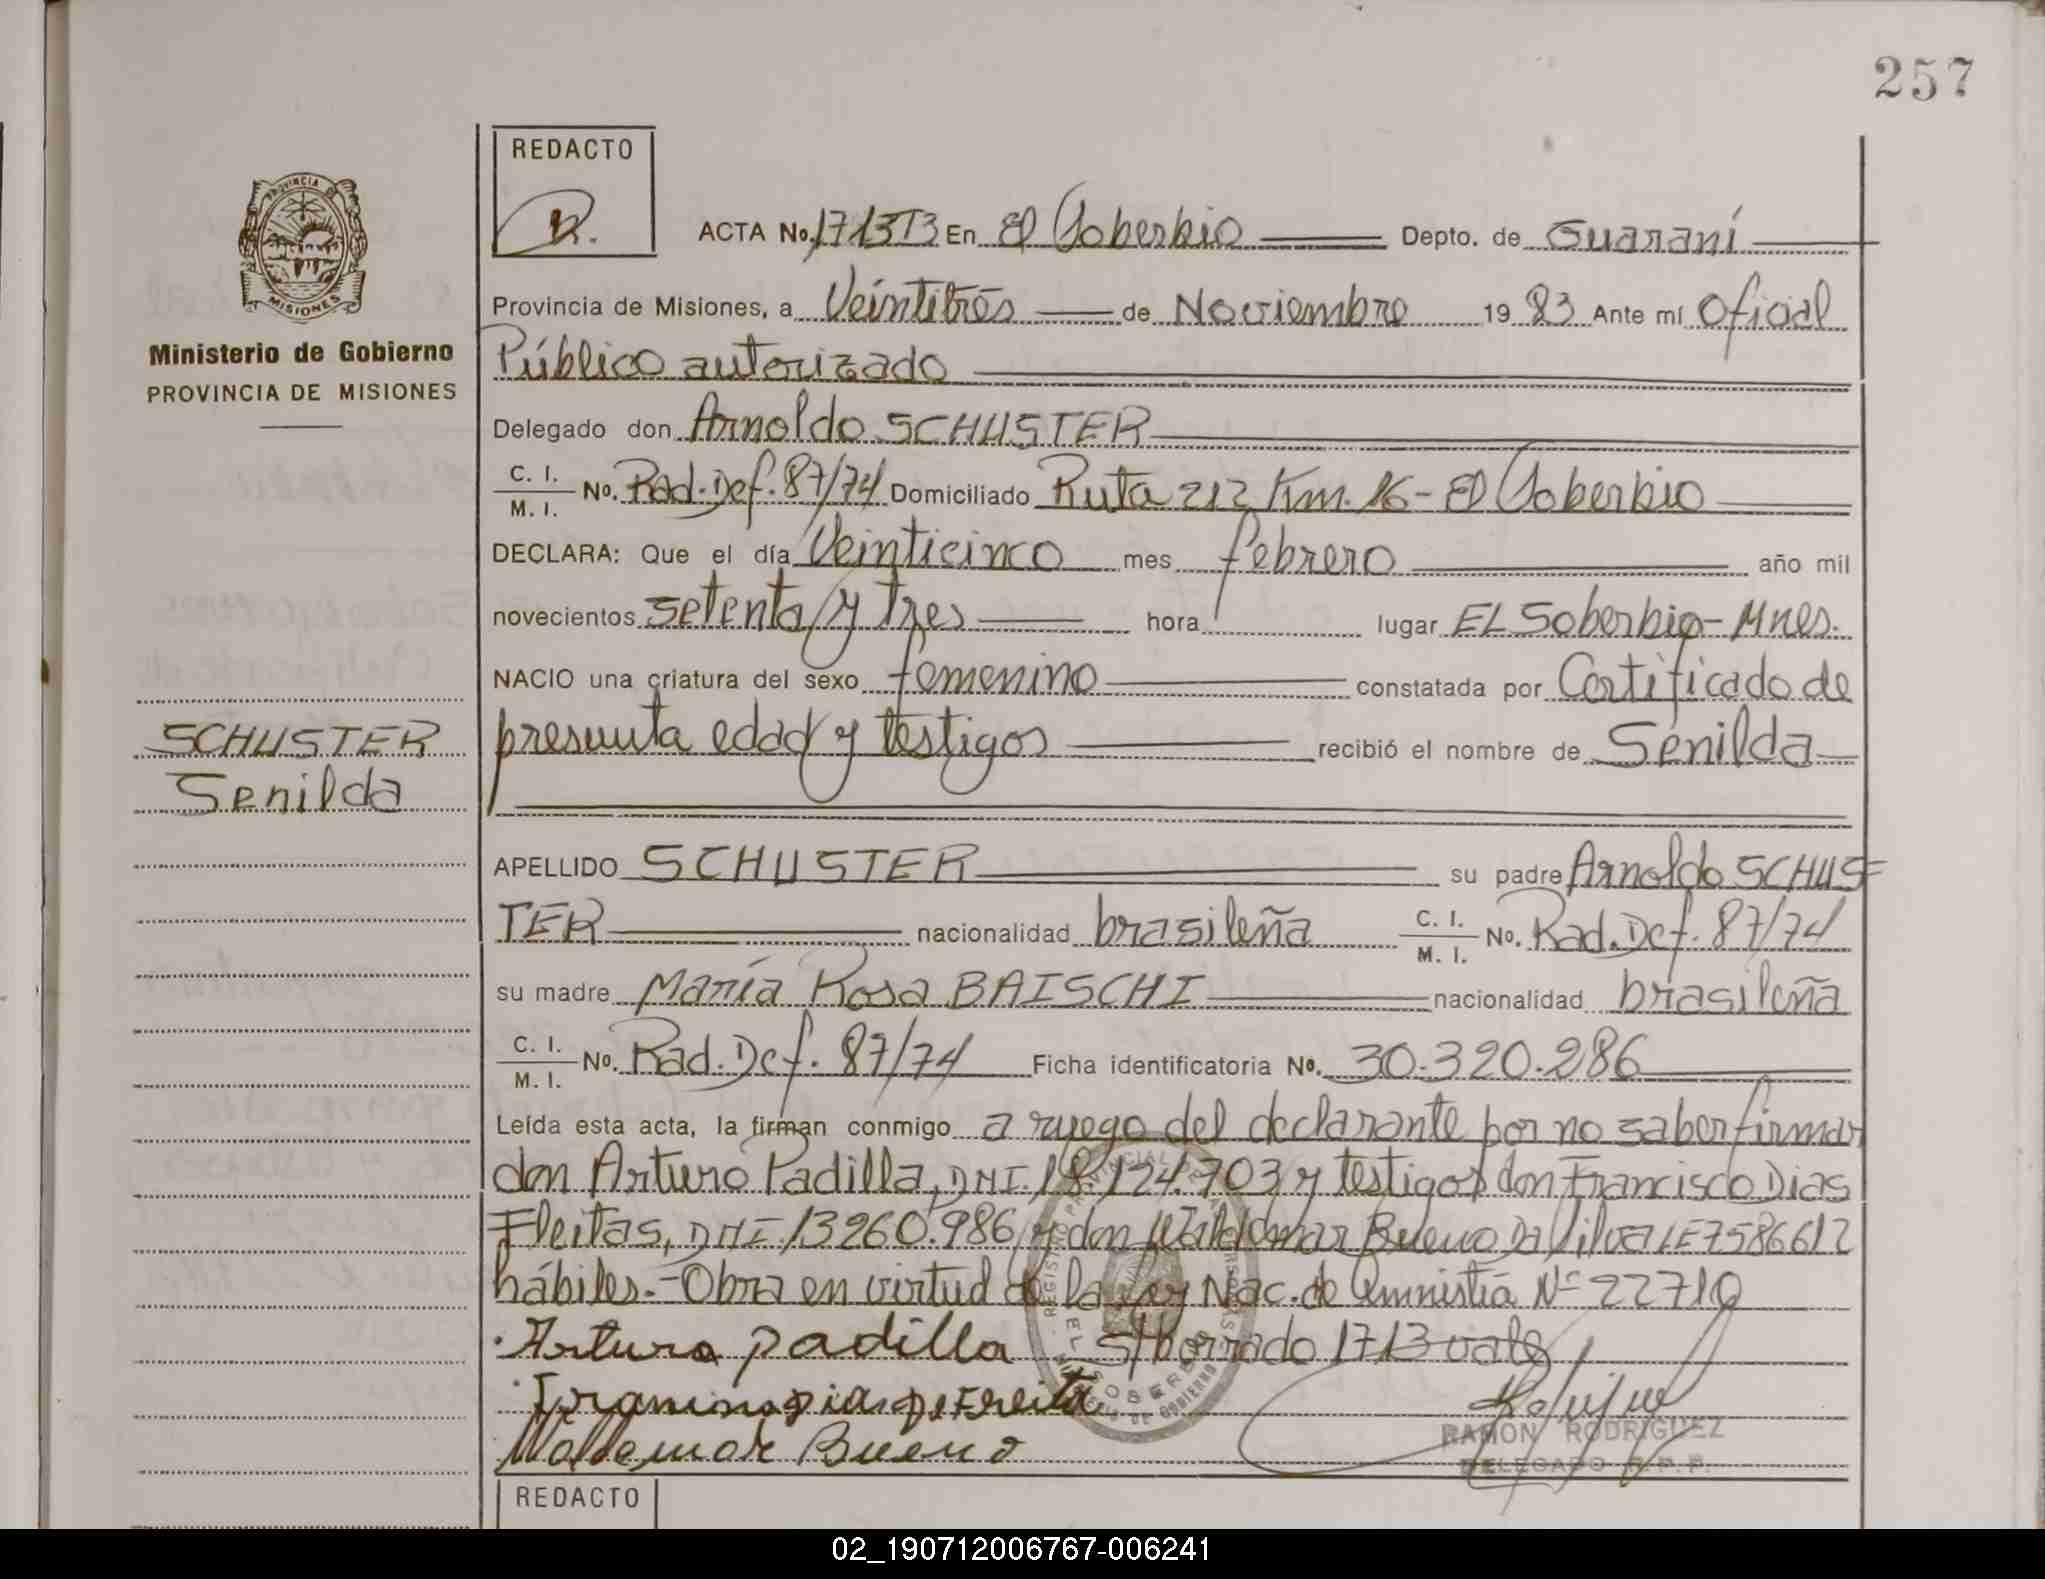 257
REDACTO
R.
ACTA No. 1713T3 En El Soberbio Depto. de Guaraní
PROVINCIA DE
MISIONES
Ministerio de Gobierno
PROVINCIA DE MISIONES
Provincia de Misiones, a Veintitrés de Noviembre 19 83 Ante mí Oficial
Público autorizado
Delegado don Arnoldo SCHUSTER
C. I. M. I. No. Rad. Def. 87/74 Domiciliado Ruta 212 Km. 16 - El Soberbio
DECLARA: Que el día Veinticinco mes febrero año mil
novecientos setenta y tres hora lugar EL Soberbio - Mnes.
NACIO una criatura del sexo femenino constatada por Certificado de
presunta edad y testigos recibió el nombre de Senilda
SCHUSTER
Senilda
APELLIDO SCHUSTER su padre Arnoldo SCHUS=
TER nacionalidad brasileña C. I. M. I. No. Rad. Def. 87/74
su madre María Rosa BAISCHI nacionalidad brasileña
C. I. M. I. No. Rad. Def. 87/74 Ficha identificatoria No. 30.320.286
Leída esta acta, la firman conmigo a ruego del declarante por no saber firmar
don Arturo Padilla, DNI. 18.124.703 y testigos don Francisco Dias
Fleitas, DNI. 13260.986 y don Waldemar Bueno Da Silva LE 7586612
hábiles.- Obra en virtud de la Ley Nac. de Amnistía Nº 22710
Arturo padilla S/borrado 1713 vale
Waldemar Bueno
RAMON RODRIGUEZ
DELEGADO R. P. P.
REDACTO
02_190712006767-006241